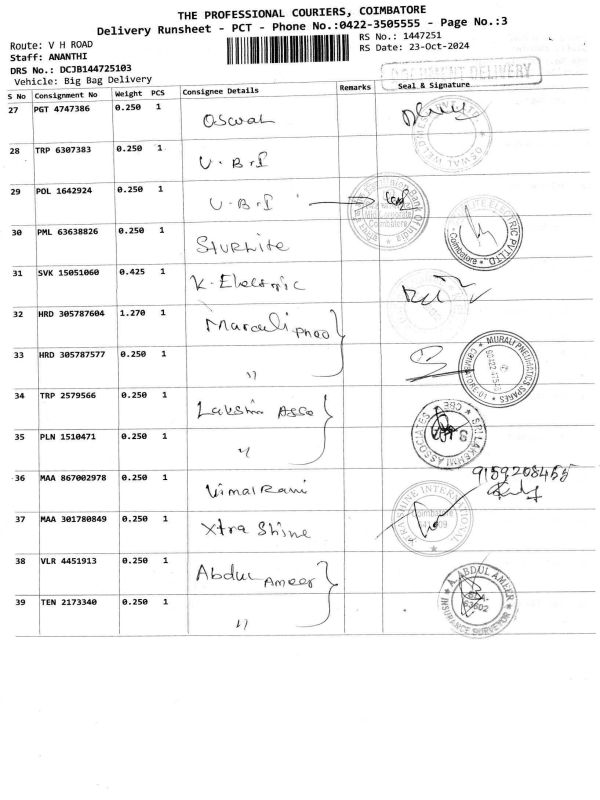 THE PROFESSIONAL COURIERS, COIMBATORE
Delivery Runsheet - PCT - Phone No.:0422-3505555 - Page No.:3
Route: V H ROAD
RS No.: 1447251
Staff: ANANTHI
RS Date: 23-Oct-2024
DRS No.: DCJB144725103
Vehicle: Big Bag Delivery
DOCUMENT DELIVERY
S No Consignment No Weight PCS Consignee Details Remarks Seal & Signature
27 PGT 4747386 0.250 1 Oswal
28 TRP 6307383 0.250 1 U.B.I
29 POL 1642924 0.250 1 U.B.I
Union Bank Of India
Coimbatore
30 PML 63638826 0.250 1 Sturlite
ELECTRIC PVT LTD.
Coimbatore
31 SVK 15051060 0.425 1 K. Electric
32 HRD 305787604 1.270 1
33 HRD 305787577 0.250 1 "
MURALI PNEUMATICS SPARES
34 TRP 2579566 0.250 1 Lakshmi Asso
SRI LAKSHMI ASSOCIATES
CBE
35 PLN 1510471 0.250 1 "
36 MAA 867002978 0.250 1 Vimal Rani 9159208455
37 MAA 301780849 0.250 1 Xtra Shine
XTRA SHINE INTERNATIONAL
38 VLR 4451913 0.250 1 Abdul Ameer
A. ABDUL AMEER
INSURANCE SURVEYOR
39 TEN 2173340 0.250 1 "